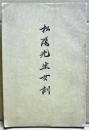 松陽先生女訓